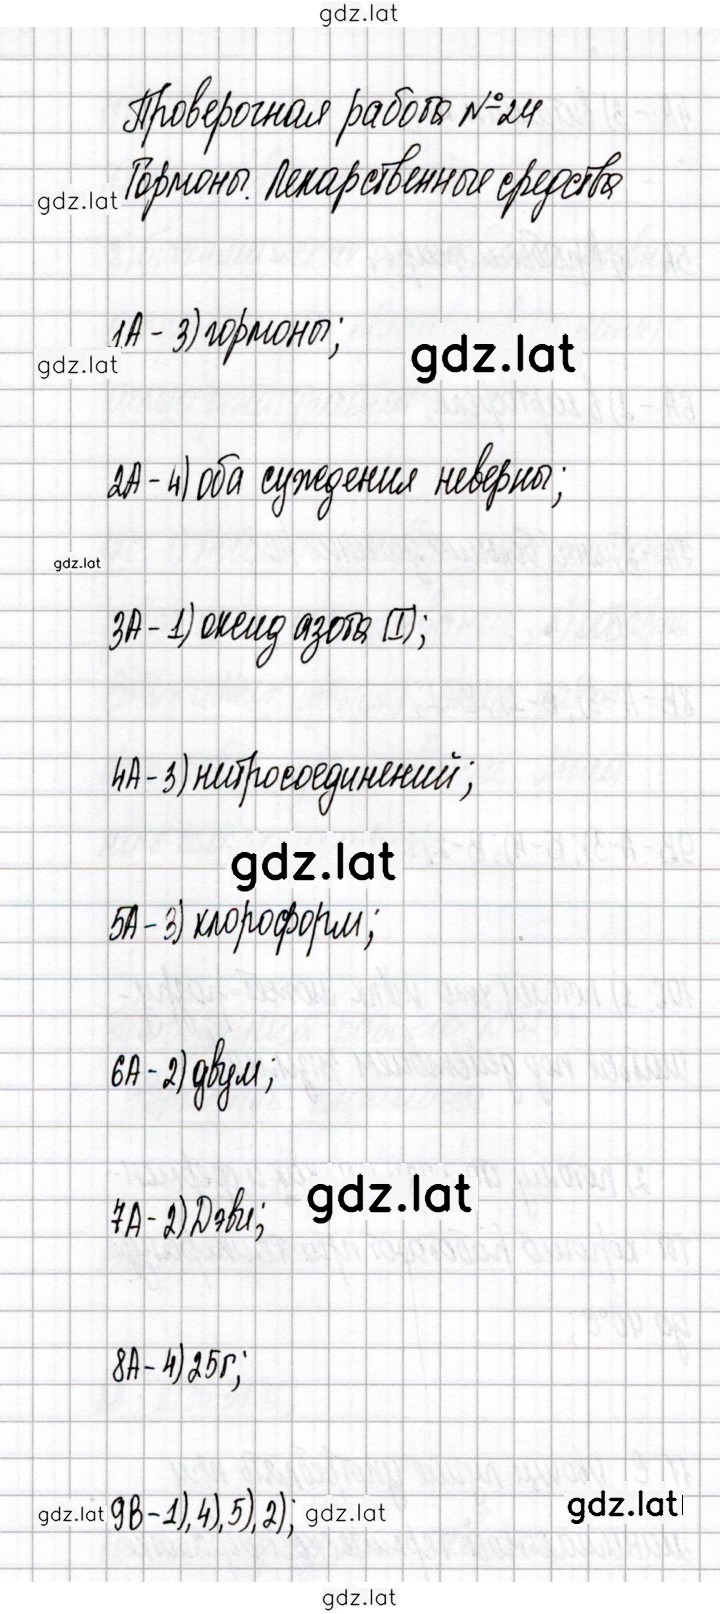 gdz.lat
Проверочная работа №24
Гормоны. Лекарственные средства
gdz.lat
1А - 3) гормоны;
gdz.lat
gdz.lat
2А - 4) оба суждения неверны;
gdz.lat
3А - 1) оксид азота (I);
4А - 3) нитросоединений;
gdz.lat
5А - 3) хлороформ;
6А - 2) двум;
gdz.lat
7А - 2) Дэви;
8А - 4) 25г;
gdz.lat
gdz.lat 9В - 1), 4), 5), 2); gdz.lat
gdz.lat